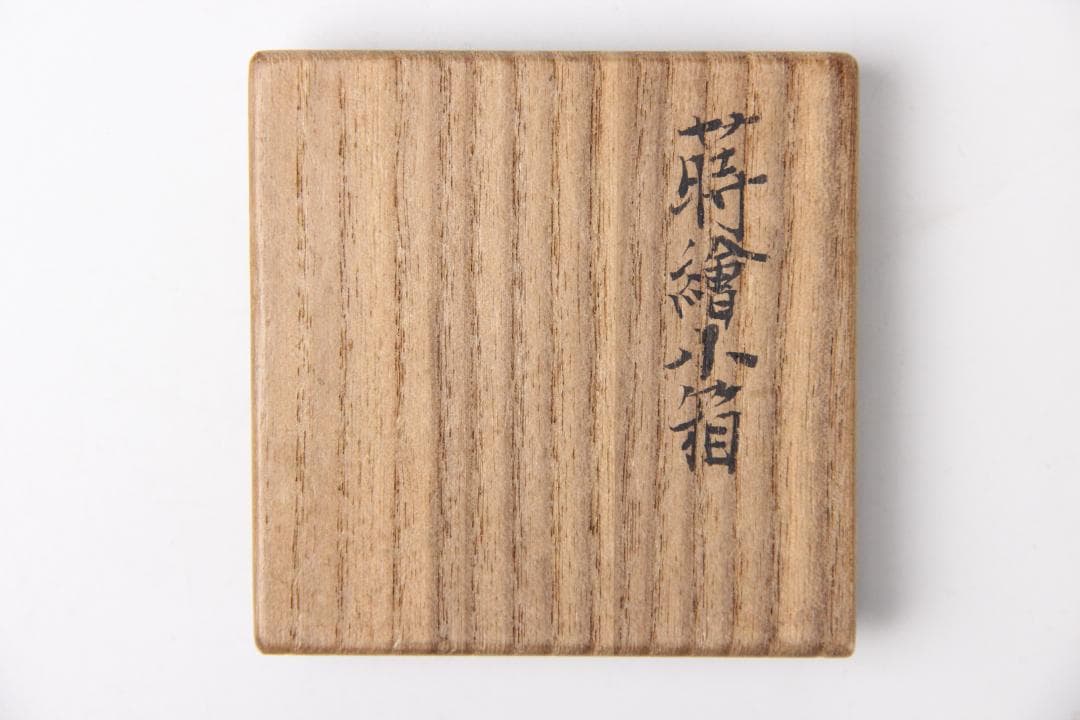 蒔繪小箱